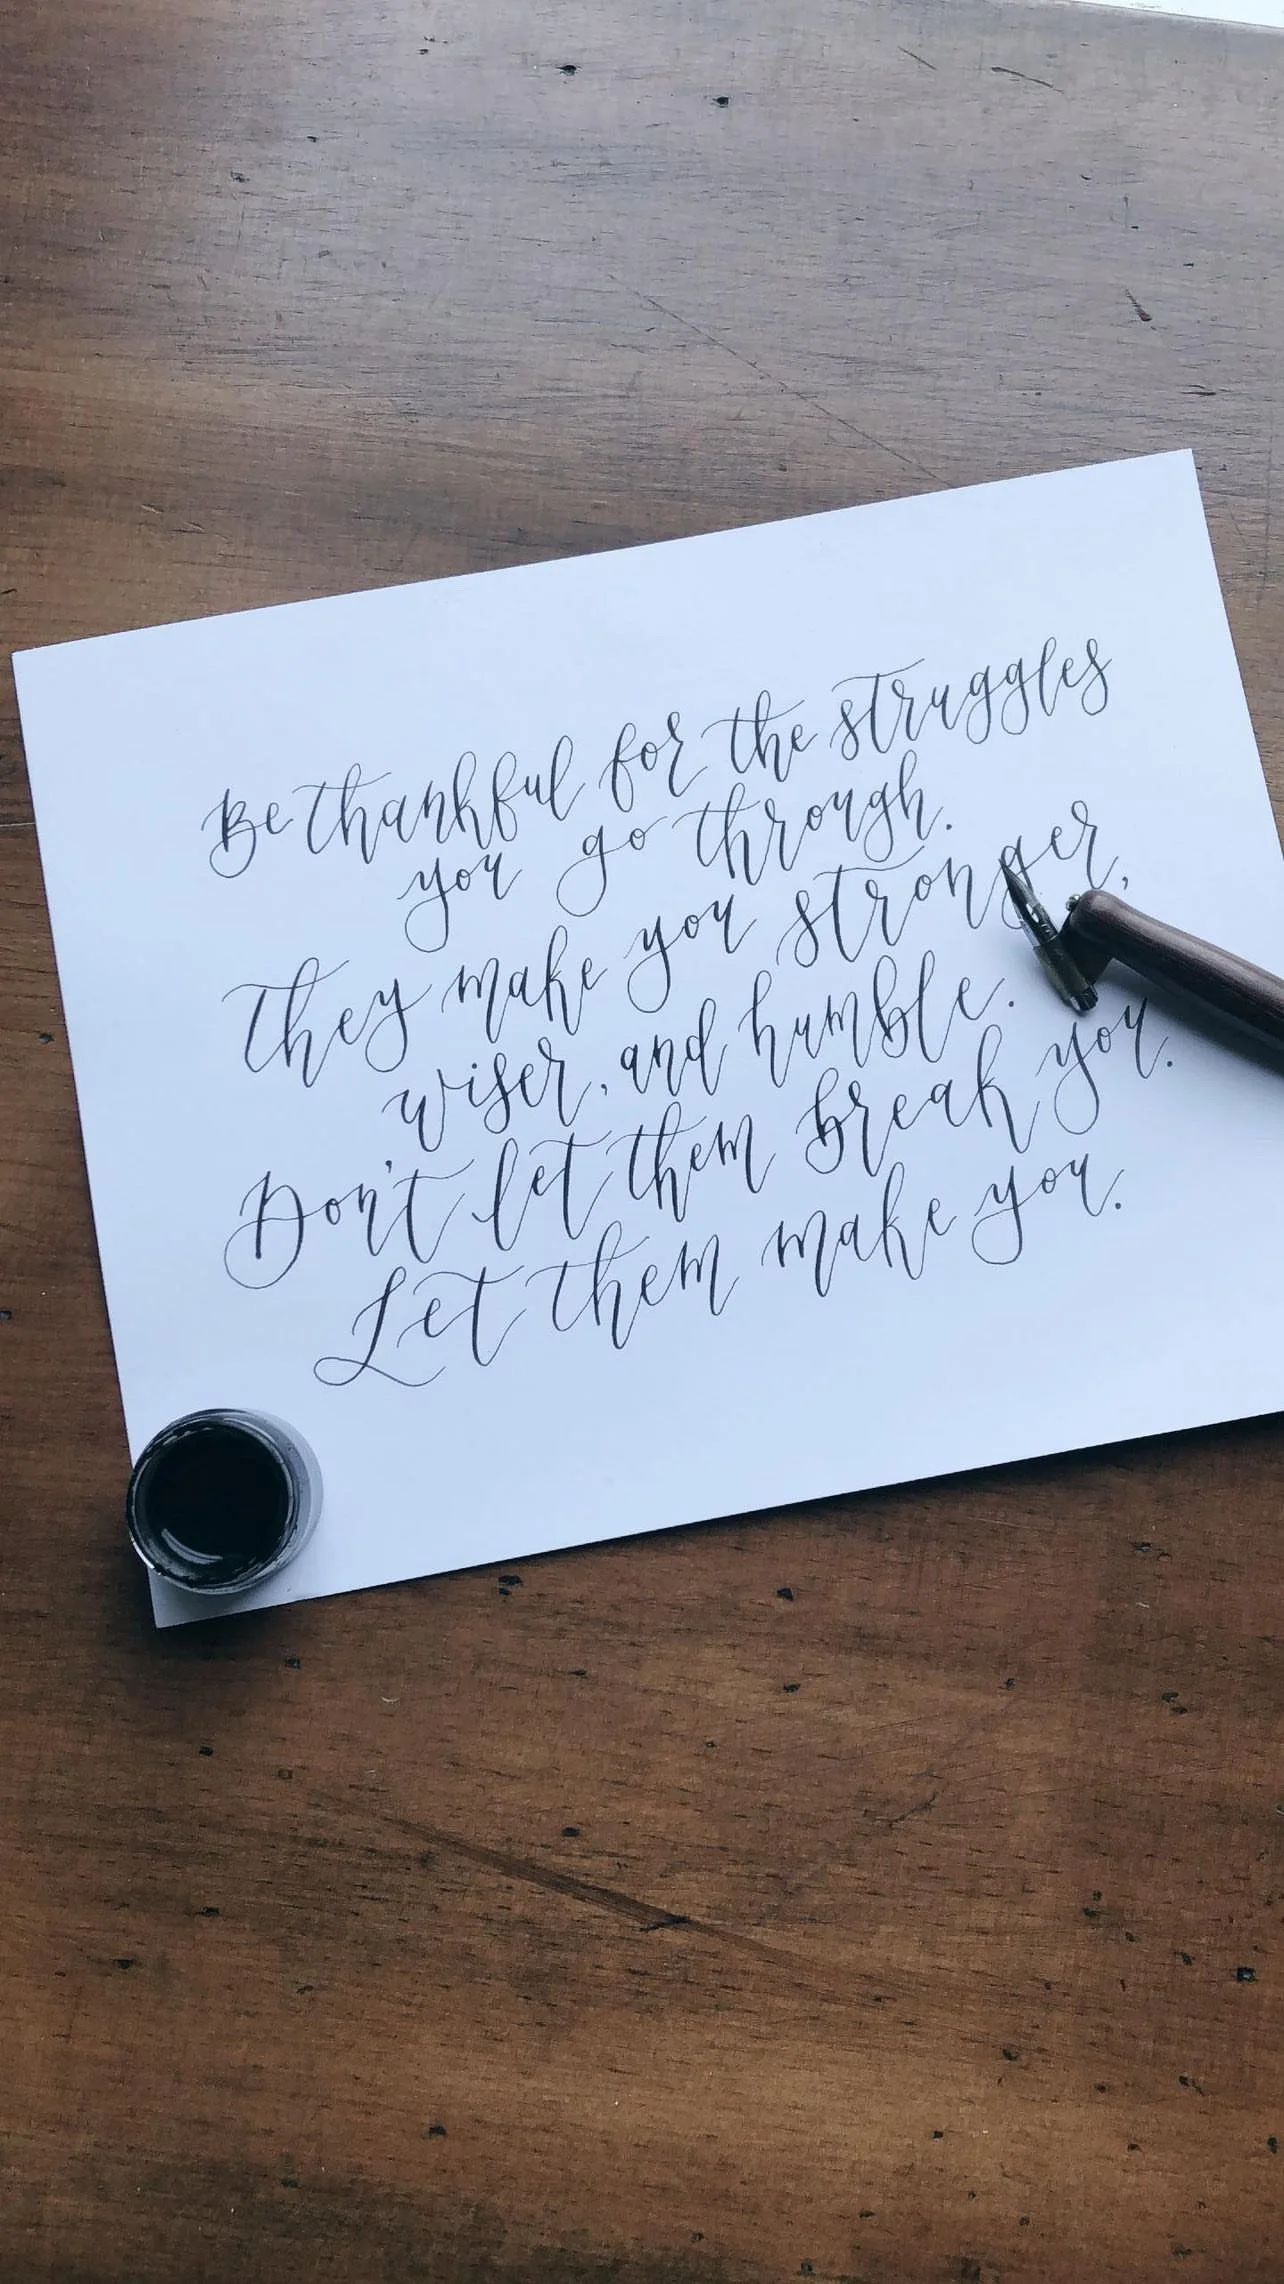 Be thankful for the struggles
you go through.
They make you stronger,
wiser, and humble.
Don't let them break you.
Let them make you.